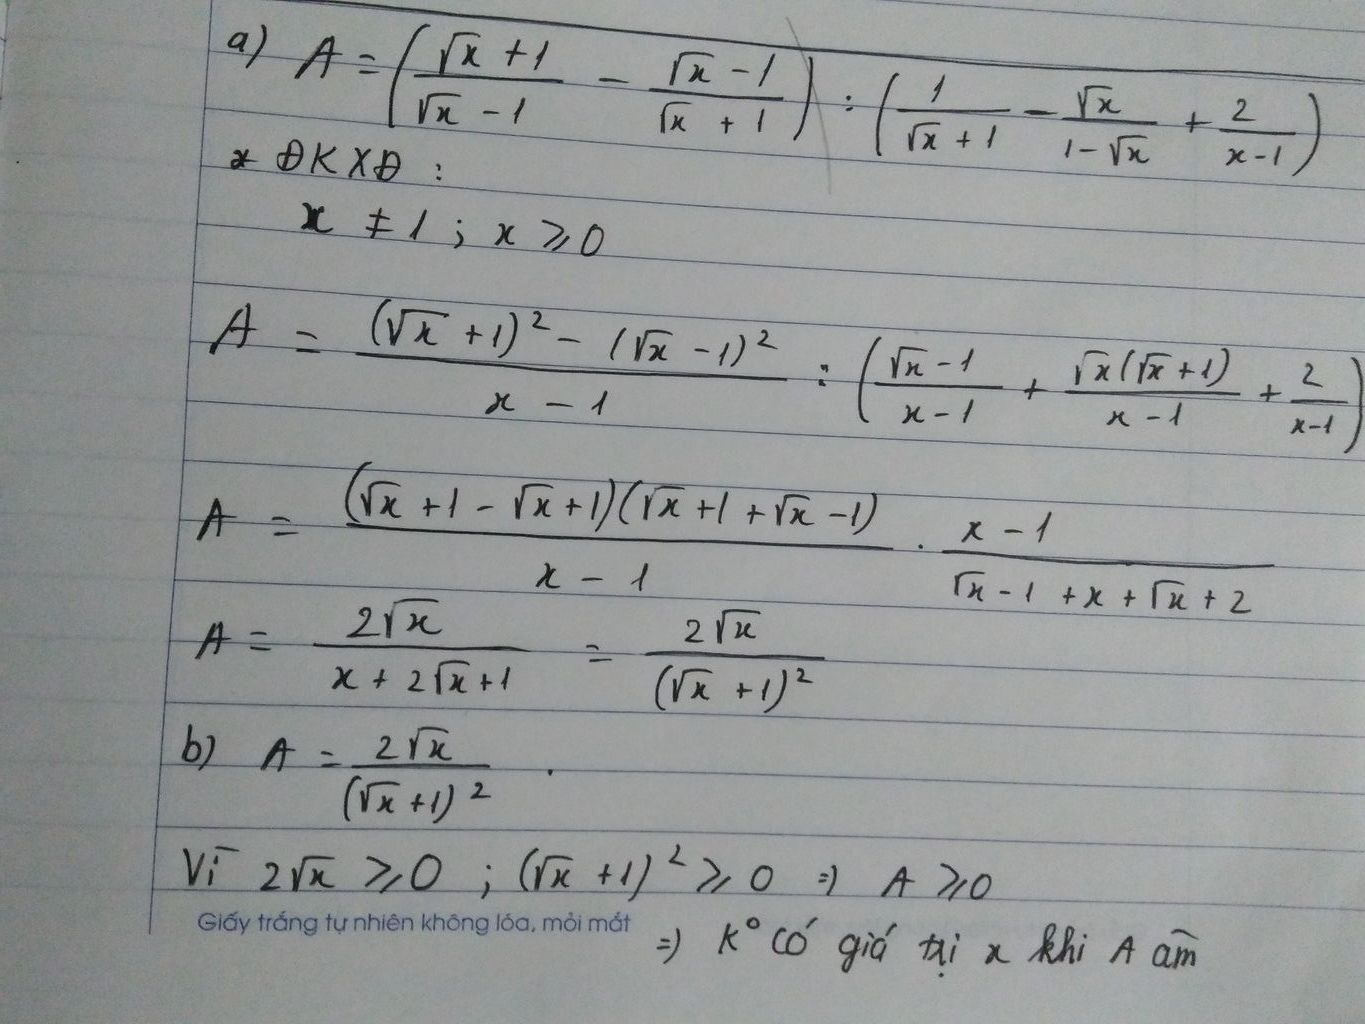 a) A = ( (√x + 1)/(√x - 1) - (√x - 1)/(√x + 1) ) : ( 1/(√x + 1) - √x/(1 - √x) + 2/(x - 1) )
* ĐKXĐ :
x ≠ 1 ; x ⩾ 0
A = ((√x + 1)² - (√x - 1)²)/(x - 1) : ( (√x - 1)/(x - 1) + √x(√x + 1)/(x - 1) + 2/(x - 1) )
A = (√x + 1 - √x + 1)(√x + 1 + √x - 1)/(x - 1) . (x - 1)/(√x - 1 + x + √x + 2)
A = 2√x/(x + 2√x + 1) = 2√x/(√x + 1)²
b) A = 2√x/(√x + 1)² .
Vì 2√x ⩾ 0 ; (√x + 1)² ⩾ 0 => A ⩾ 0
Giấy trắng tự nhiên không lóa, mỏi mắt
=> K° có giá trị x khi A âm